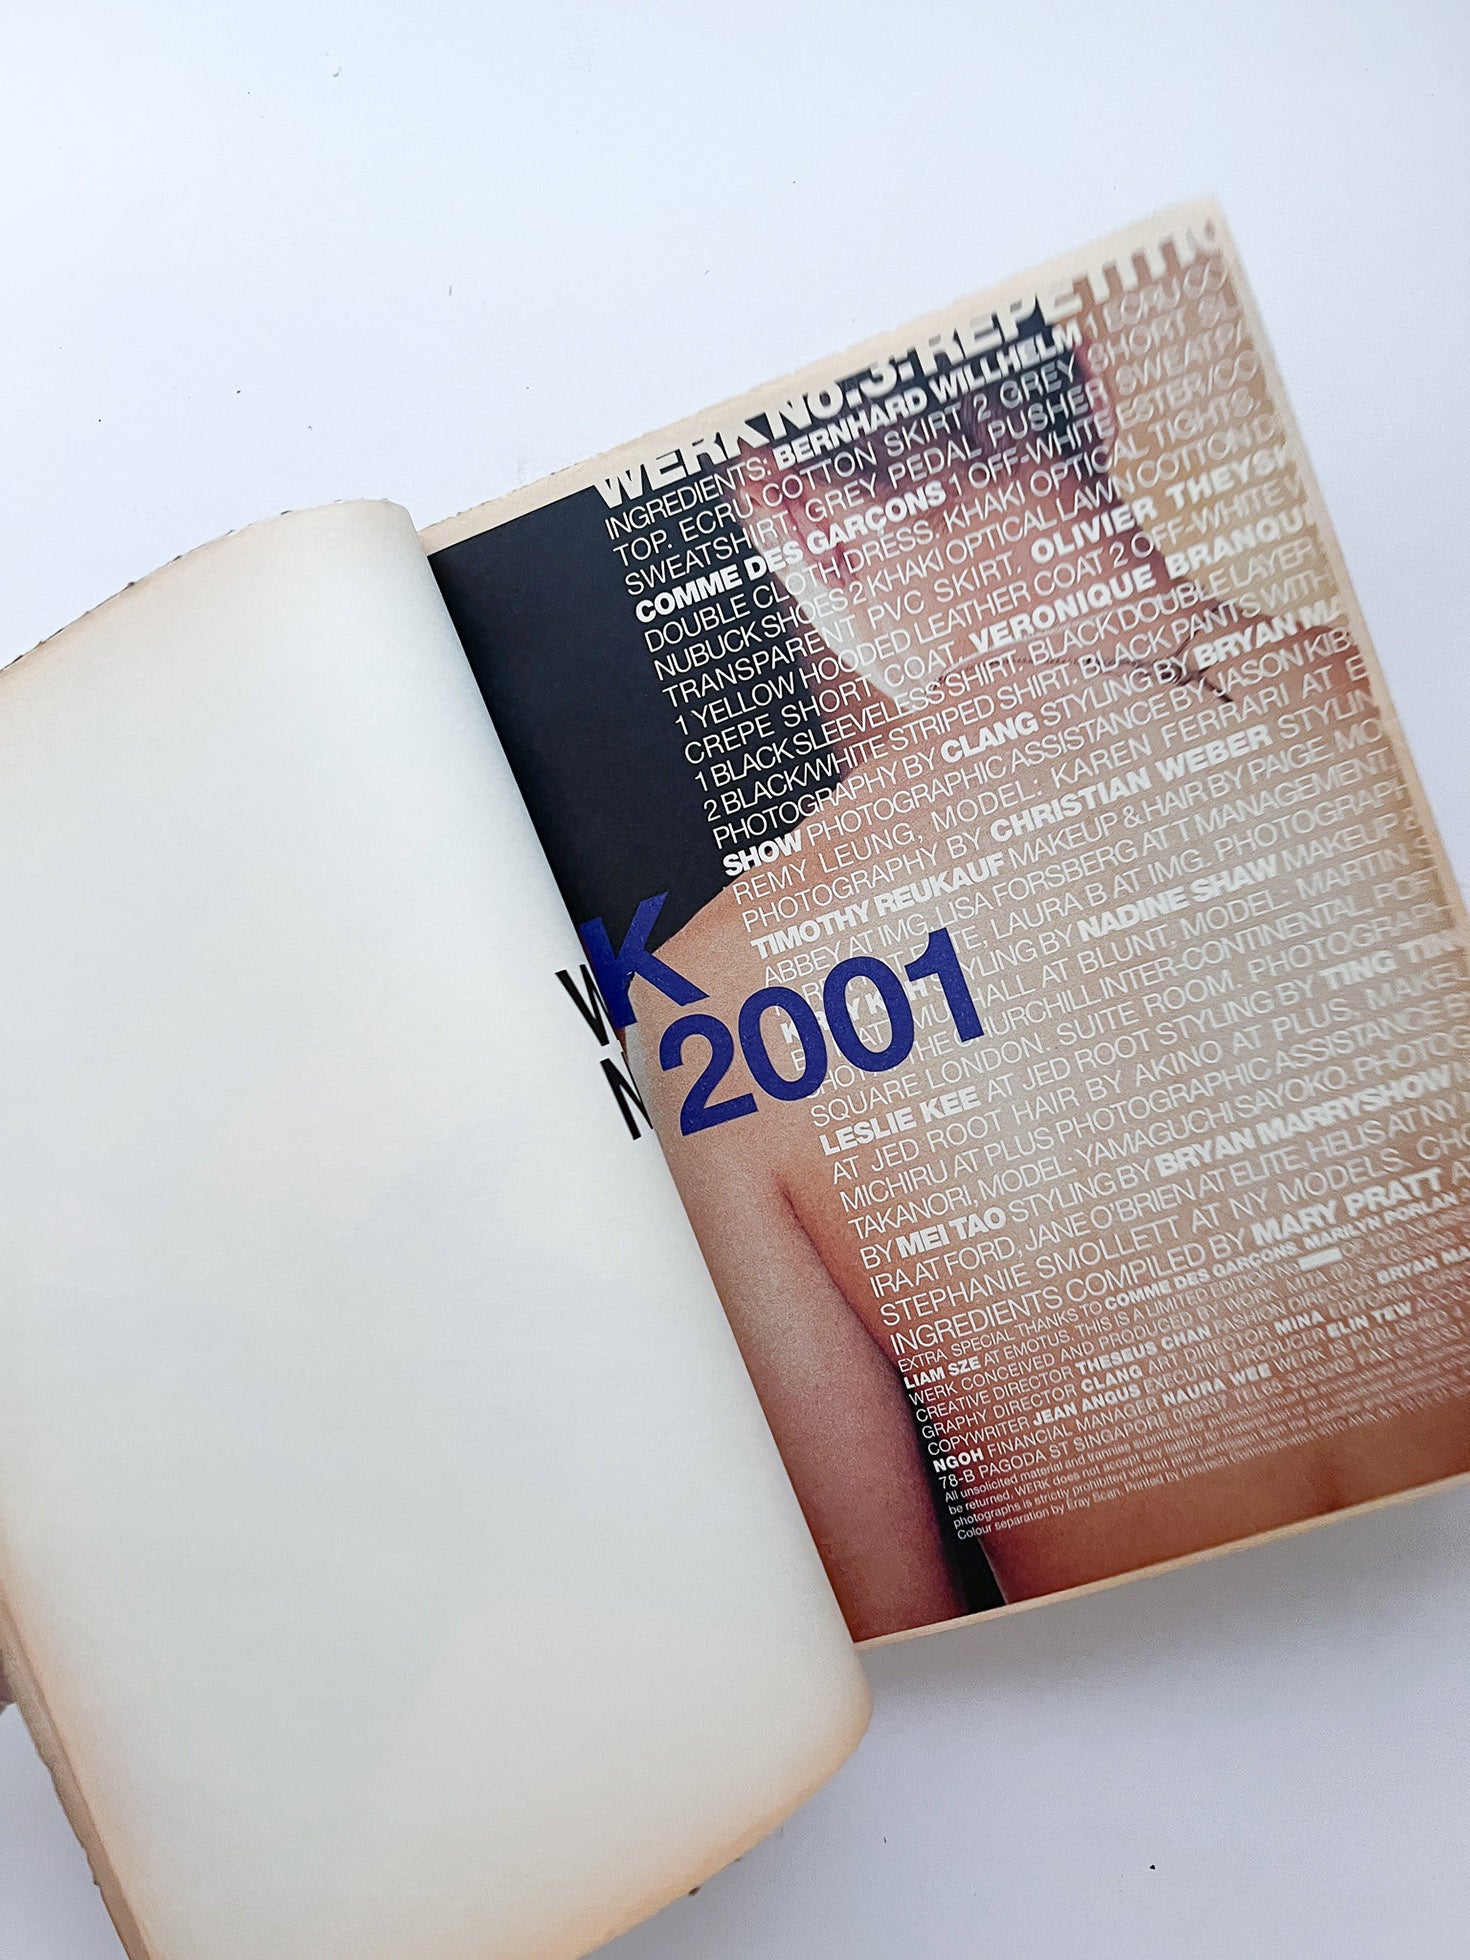 WERK No.3: REPETITI
INGREDIENTS: BERNHARD WILLHELM 1 ECRU CO
TOP. ECRU COTTON SKIRT 2 GREY SHORT SL
SWEATSHIRT. GREY PEDAL PUSHER SWEATPA
COMME DES GARÇONS 1 OFF-WHITE ESTER/CO
DOUBLE CLOTH DRESS. KHAKI OPTICAL TIGHTS.
NUBUCK SHOES 2 KHAKI OPTICAL LAWN COTTON D
TRANSPARENT PVC SKIRT. OLIVIER THEYSK
1 YELLOW HOODED LEATHER COAT 2 OFF-WHITE
CREPE SHORT COAT. VERONIQUE BRANQU
1 BLACK SLEEVELESS SHIRT. BLACK DOUBLE LAYER
2 BLACK/WHITE STRIPED SHIRT. BLACK PANTS WITH
PHOTOGRAPHY BY CLANG STYLING BY BRYAN MA
SHOW PHOTOGRAPHIC ASSISTANCE BY JASON KIB
REMY LEUNG, MODEL: KAREN FERRARI AT E
PHOTOGRAPHY BY CHRISTIAN WEBER STYLIN
TIMOTHY REUKAUF MAKEUP & HAIR BY PAIGE. MO
ABBEY AT IMG, LISA FORSBERG AT T MANAGEMENT,
LAURA B AT IMG. PHOTOGRAPH
STYLING BY NADINE SHAW MAKEUP &
AT BLUNT, MODEL: MARTIN S
CHURCHILL INTER-CONTINENTAL, PORT
SQUARE LONDON. SUITE ROOM. PHOTOGRAPH
LESLIE KEE AT JED ROOT STYLING BY TING TIN
AT JED ROOT HAIR BY AKINO AT PLUS. MAKEU
MICHIRU AT PLUS PHOTOGRAPHIC ASSISTANCE B
TAKANORI, MODEL: YAMAGUCHI SAYOKO. PHOTOG
BY MEI TAO STYLING BY BRYAN MARRYSHOW
IRA AT FORD, JANE O'BRIEN AT ELITE, HELIS AT NY
STEPHANIE SMOLLETT AT NY MODELS. CHO
INGREDIENTS COMPILED BY MARY PRATT
EXTRA SPECIAL THANKS TO COMME DES GARÇONS, MARILYN PORLAN
LIAM SZE AT EMOTUS. THIS IS A LIMITED EDITION No
WERK CONCEIVED AND PRODUCED BY WORK. MITA (P)
CREATIVE DIRECTOR THESEUS CHAN FASHION DIRECTOR BRYAN MA
GRAPHY DIRECTOR CLANG ART DIRECTOR MINA EDITORIAL
COPYWRITER JEAN ANGUS EXECUTIVE PRODUCER ELIN TEW
NGOH FINANCIAL MANAGER NAURA WEE WERK IS PUBLISHED
78-B PAGODA ST SINGAPORE 059237 TEL
All unsolicited material and trannies submitted for
be returned. WERK does not accept any liability for
photographs is strictly prohibited without prior permission from the
Colour separation by Eray Scan. Printed by
K
2001
W
N